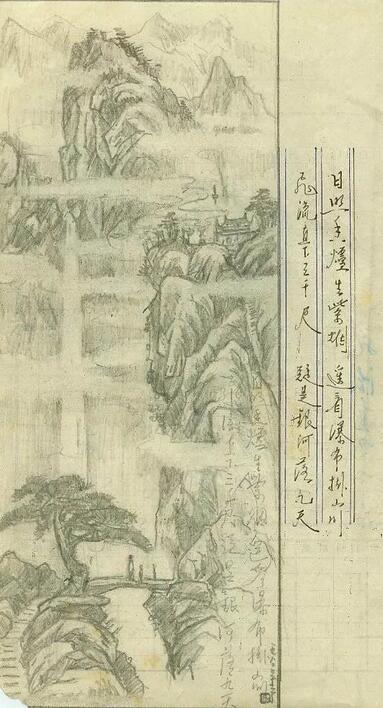 日照香爐生紫烟 遙看瀑布掛山川
飛流直下三千尺 疑是銀河落九天
日照香爐生紫烟遙看瀑布掛山川
飛流直下三千尺疑是銀河落九天